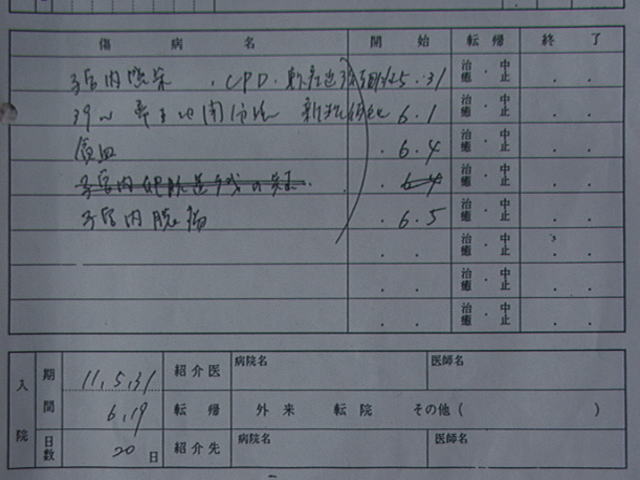 傷病名 開始 転帰 終了
子宮内感染 . CPD. 軟産道 5.31 治癒・中止 . .
39w 6.1 治癒・中止 . .
貧血 . 6.4 治癒・中止 . .
子宮内 . 6.4 治癒・中止 . .
子宮内膜 . 6.5 治癒・中止 . .
. . 治癒・中止 . .
. . 治癒・中止 . .
. . 治癒・中止 . .
入院 期間 11.5.31 紹介医 病院名 医師名
6.19 転帰 外来 転院 その他 ( )
日数 20日 紹介先 病院名 医師名